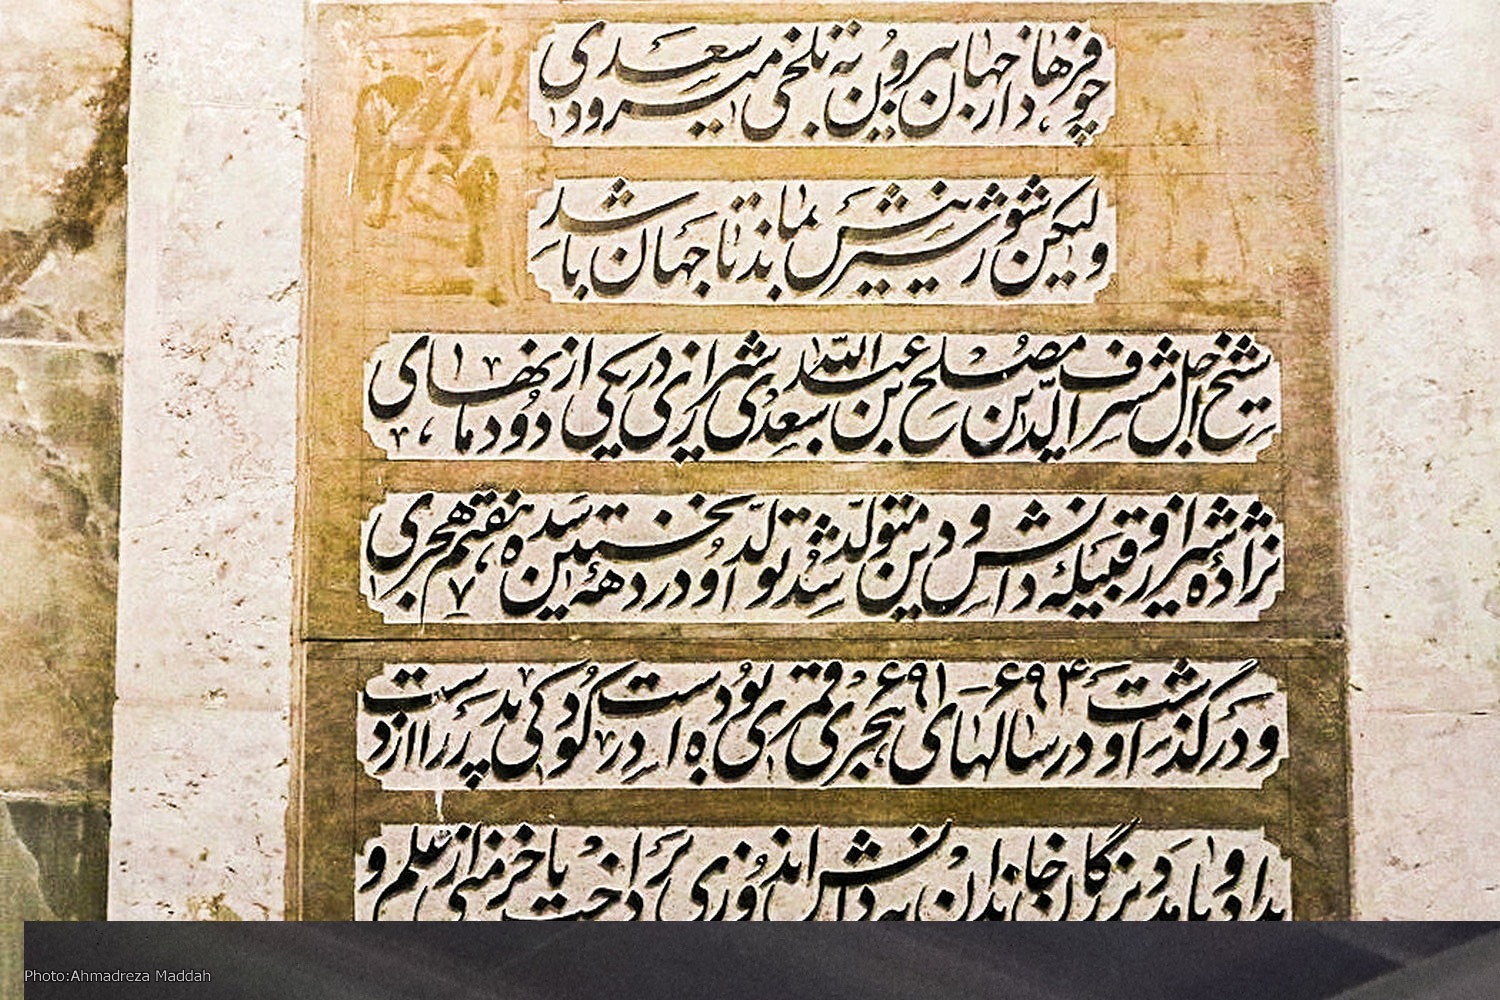 چو فرهاد از جهان بیرون به تلخی میرود سعدی
ولیکن شور شیرینش بماند تا جهان باشد
شیخ اجل مشرف الدین مصلح بن عبدالله سعدی شیرازی در یکی از دودمانهای
نژاده شیراز و قبیلهٔ دانش و دین متولد شد تولد او در دههٔ نخستین سده هفتم هجری
و درگذشت او در سالهای ۶۹۴-۶۹۱ هجری قمری بوده است در کودکی پدر را از دست
داد و با مدد بزرگان خاندان به دانش اندوزی پرداخت با خرمنی از علم و
Photo:Ahmadreza Maddah